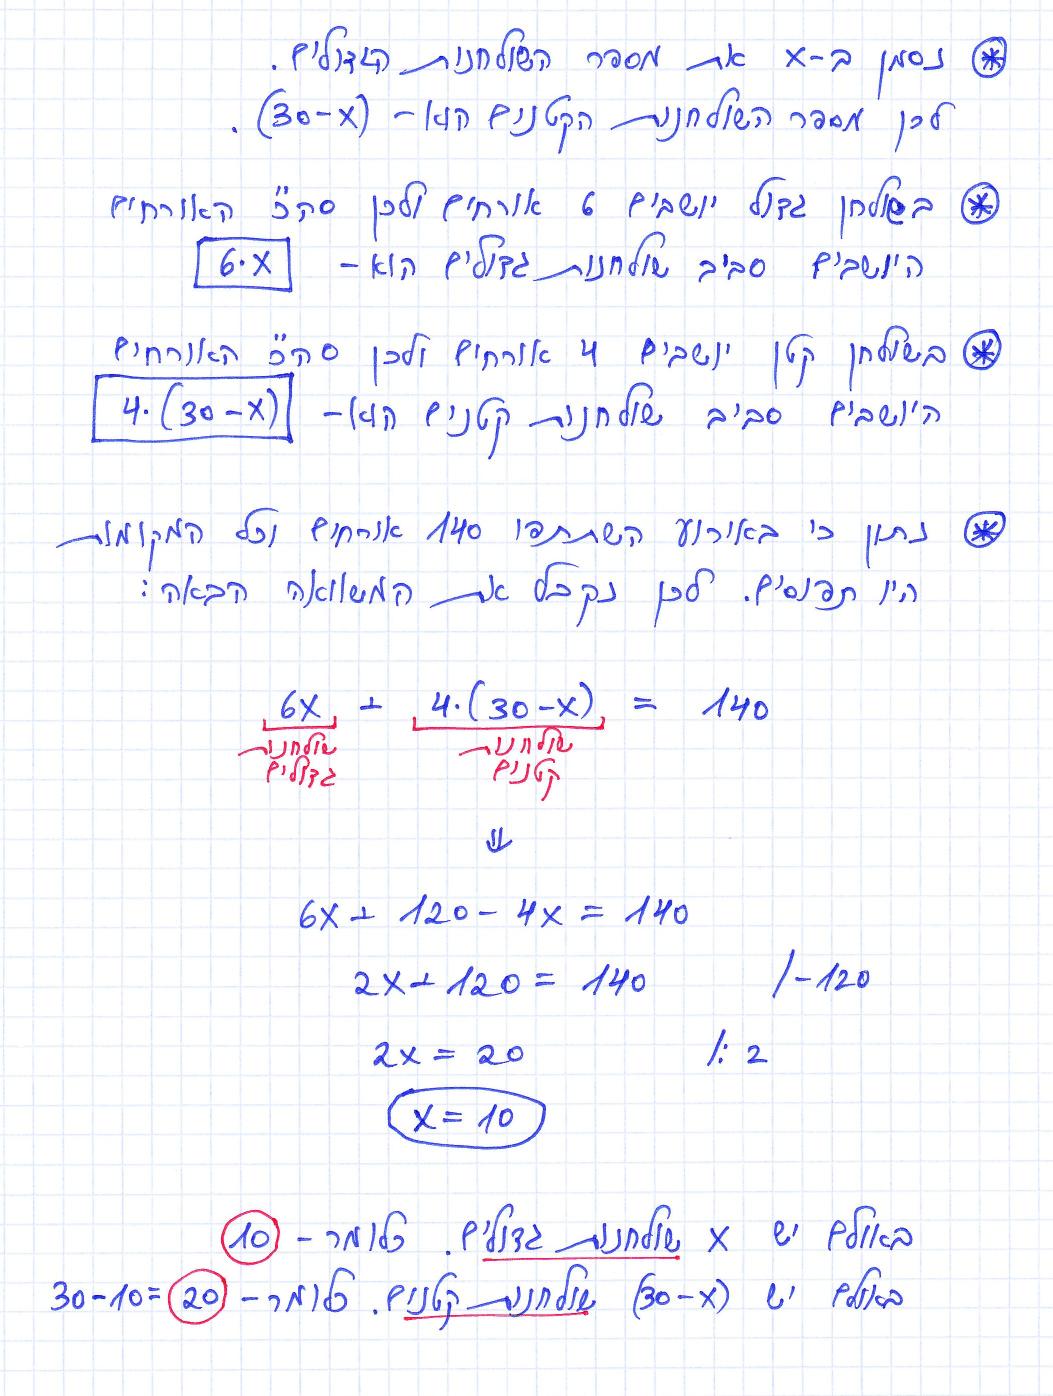 ⊛ נסמן ב-x את מספר השולחנות הגדולים.
לכן מספר השולחנות הקטנים הוא - (30-x).
⊛ בשולחן גדול יושבים 6 אורחים ולכן סה"כ האורחים
היושבים סביב שולחנות גדולים הוא - 6·x
⊛ בשולחן קטן יושבים 4 אורחים ולכן סה"כ האורחים
היושבים סביב שולחנות קטנים הוא - 4·(30-x)
⊛ נתון כי באירוע השתתפו 140 אורחים וכל המקומות
היו תפוסים. לכן נקבל את המשוואה הבאה:
6x + 4·(30-x) = 140
שולחנות שולחנות
גדולים קטנים
⇓
6x + 120 - 4x = 140
2x + 120 = 140 /-120
2x = 20 /: 2
x = 10
באולם יש x שולחנות גדולים. כלומר - 10
באולם יש (30-x) שולחנות קטנים. כלומר - 30-10=20